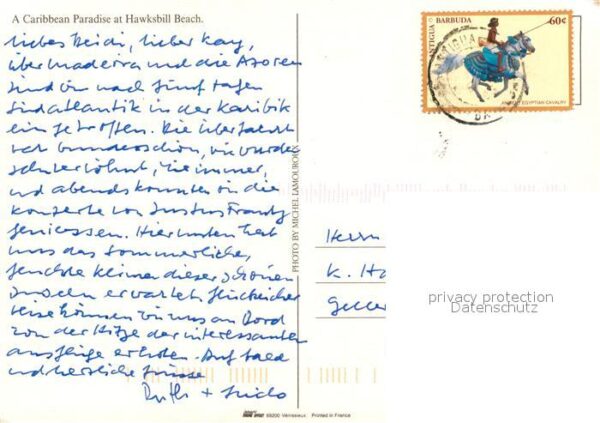 A Caribbean Paradise at Hawksbill Beach.
Liebes Heidi, lieber Kay,
über Madeira und die Azoren
sind wir nach fünf Tagen
Südatlantik in der Karibik
eingetroffen. Die Überfahrt
war wunderschön, wir wurden
sehr verwöhnt, wie immer,
und abends konnten wir die
Konzerte von Justus Frantz
geniessen. Hier unten hat
uns das sommerliche,
feuchte Klima dieser schönen
Inseln erwartet. Glücklicher
weise können wir uns an Bord
von der Hitze der interessanten
Ausflüge erholen. Auf bald
und herzliche Grüsse
Ruth +
PHOTO BY MICHEL LAMOUROUX
ANTIGUA & BARBUDA 60¢
ANCIENT EGYPTIAN CAVALRY
Herrn
K. Ha
Geller
privacy protection
Datenschutz
69200 Vénissieux Printed in France